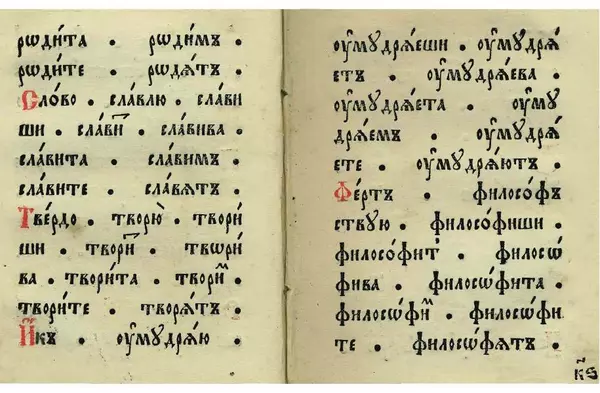 рѡди́та • рѡди́мъ •
рѡди́те • рѡдѧ́тъ •
Сло́во • сла́влю • сла́ви
ши • сла́ви́т • сла́вива •
сла́вита • сла́вимъ •
сла́вите • сла́вѧтъ •
Тве́рдо • творю̀ • твори́
ши • твори́т • твѡри́
ва • твори́та • твори́м •
твори́те • творѧ́тъ •
И҆́къ • ᲂу҆мꙋдрѧ́ю •
ᲂу҆мꙋдрѧ́еши • ᲂу҆мꙋдрѧ́
етъ • ᲂу҆мꙋдрѧ́ева •
ᲂу҆мꙋдрѧ́ета • ᲂу҆мꙋ
дрѧ́емъ • ᲂу҆мꙋдрѧ́
ете • ᲂу҆мꙋдрѧ́ютъ •
Фе́ртъ • филосо́фъ
ствую • филосо́фиши •
филосо́фит • филосѡ́
фива • филосѡ́фита •
филосѡ́фим • филосѡ́фи
те • филосѡ́фѧтъ •
к҃ѕ